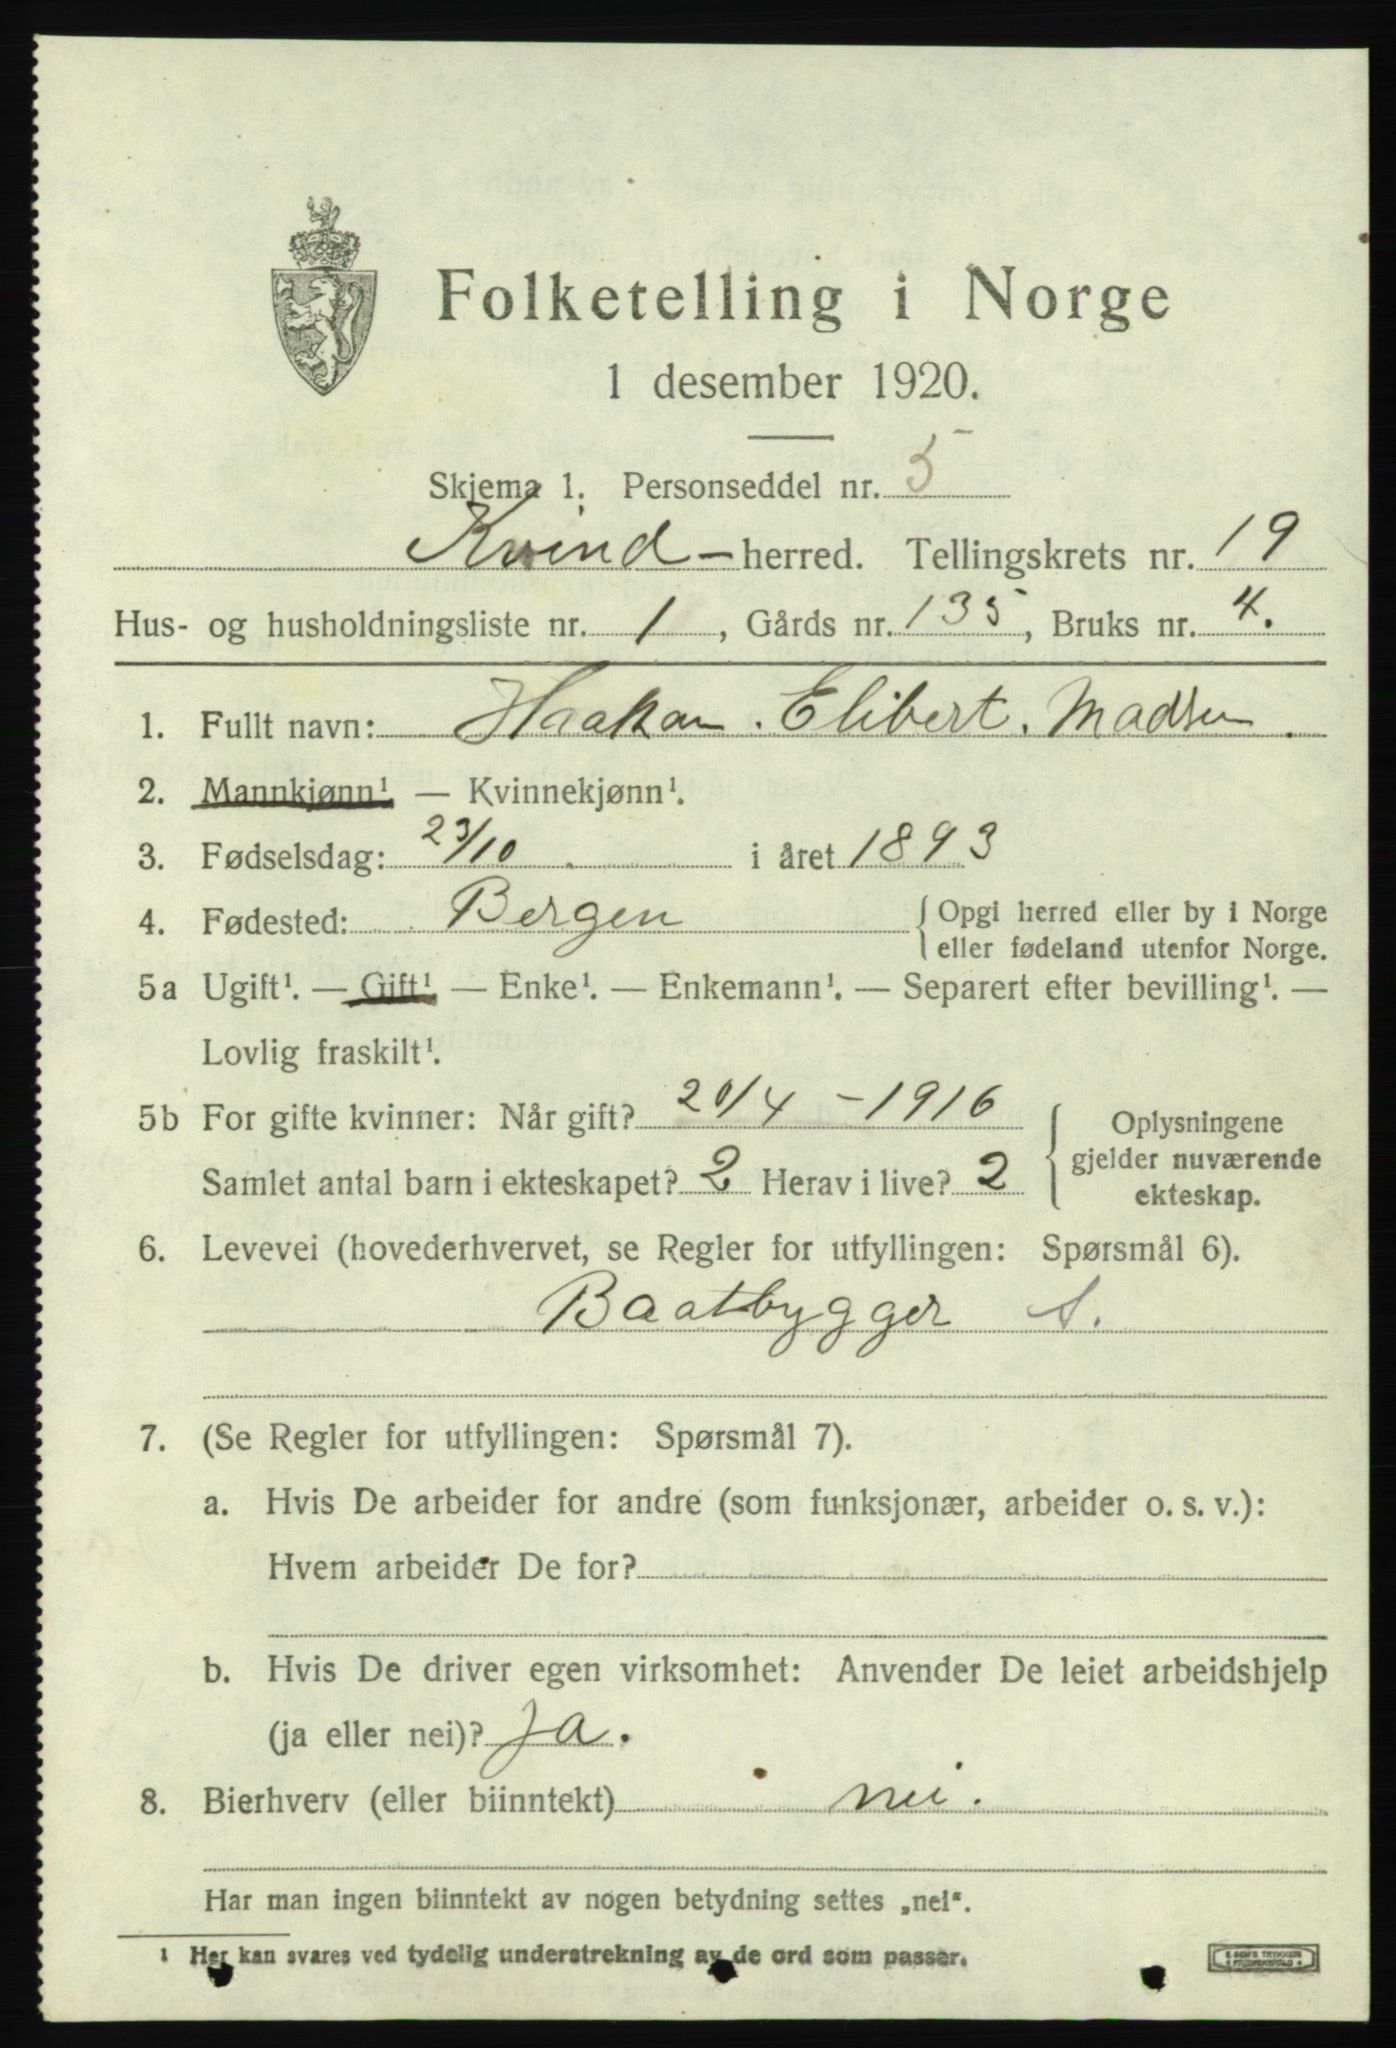 Folketelling i Norge
1 desember 1920.
Skjema 1. Personseddel nr. 5
Kvind-herred. Tellingskrets nr. 19
Hus- og husholdningsliste nr. 1, Gårds nr. 135, Bruks nr. 4.
1. Fullt navn: Haakon. Elibert. Madsen.
2. Mannkjønn¹ — Kvinnekjønn¹.
3. Fødselsdag: 23/10. i året 1893
4. Fødested: Bergen { Opgi herred eller by i Norge
eller fødeland utenfor Norge.
5a Ugift¹. — Gift¹. — Enke¹. — Enkemann¹. — Separert efter bevilling¹. —
Lovlig fraskilt¹.
5b For gifte kvinner: Når gift? 20/4 - 1916 { Oplysningene
gjelder nuværende
Samlet antal barn i ekteskapet? 2 Herav i live? 2 ekteskap.
6. Levevei (hovederhvervet, se Regler for utfyllingen: Spørsmål 6).
Baatbygger S.
7. (Se Regler for utfyllingen: Spørsmål 7).
a. Hvis De arbeider for andre (som funksjonær, arbeider o. s. v.):
Hvem arbeider De for?
b. Hvis De driver egen virksomhet: Anvender De leiet arbeidshjelp
(ja eller nei)? Ja.
8. Bierhverv (eller biinntekt) nei.
Har man ingen biinntekt av nogen betydning settes „nei“.
1 Her kan svares ved tydelig understrekning av de ord som passer.